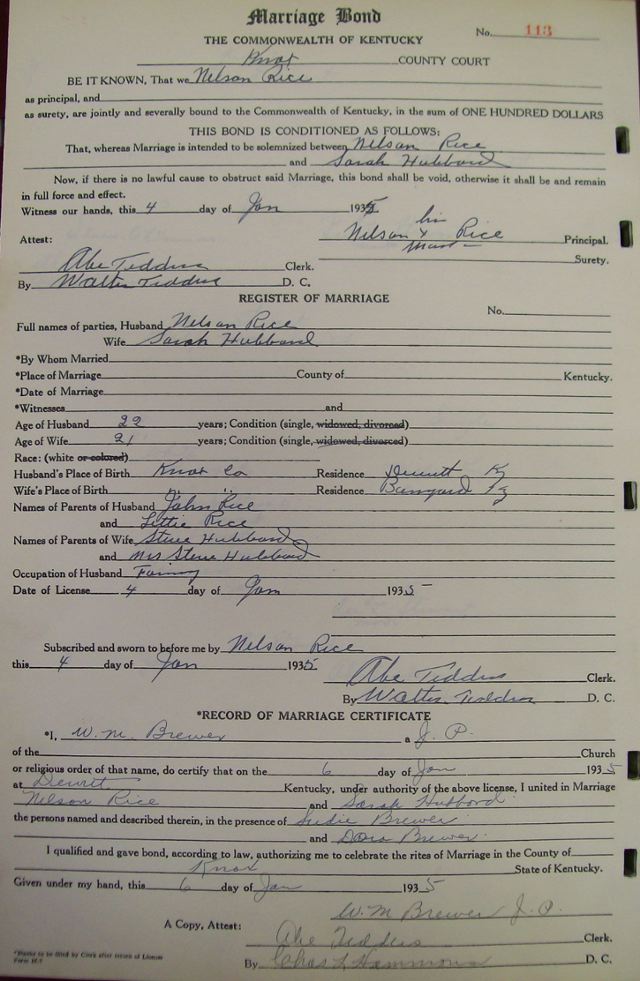 Marriage Bond
No. 113
THE COMMONWEALTH OF KENTUCKY
Knox COUNTY COURT
BE IT KNOWN, That we Nelson Rice
as principal, and
as surety, are jointly and severally bound to the Commonwealth of Kentucky, in the sum of ONE HUNDRED DOLLARS
THIS BOND IS CONDITIONED AS FOLLOWS:
That, whereas Marriage is intended to be solemnized between Nelson Rice
and Sarah Hubbard
Now, if there is no lawful cause to obstruct said Marriage, this bond shall be void, otherwise it shall be and remain
in full force and effect.
Witness our hands, this 4 day of Jan 1935
his
Nelson x Rice Principal.
mark
Attest:
Surety.
Abe Tedders Clerk.
By Walter Tedders D. C.
REGISTER OF MARRIAGE
No.
Full names of parties, Husband Nelson Rice
Wife Sarah Hubbard
*By Whom Married
*Place of Marriage County of Kentucky.
*Date of Marriage
*Witnesses and
Age of Husband 22 years; Condition (single, widowed, divorced)
Age of Wife 21 years; Condition (single, widowed, divorced)
Race: (white or colored)
Husband's Place of Birth Knox Co Residence Dewitt Ky
Wife's Place of Birth " " Residence Barnyard Ky
Names of Parents of Husband John Rice
and Lettie Rice
Names of Parents of Wife Steve Hubbard
and Mrs Steve Hubbard
Occupation of Husband Farming
Date of License 4 day of Jan 1935
Subscribed and sworn to before me by Nelson Rice
this 4 day of Jan 1935
Abe Tedders Clerk.
By Walter Tedders D. C.
*RECORD OF MARRIAGE CERTIFICATE
*I, W. M. Brewer a J. P.
of the Church
or religious order of that name, do certify that on the 6 day of Jan 1935
at Dewitt Kentucky, under authority of the above license, I united in Marriage
Nelson Rice and Sarah Hubbard
the persons named and described therein, in the presence of Sudie Brewer
and Dora Brewer
I qualified and gave bond, according to law, authorizing me to celebrate the rites of Marriage in the County of
Knox State of Kentucky.
Given under my hand, this 6 day of Jan 1935
W. M Brewer J. P.
A Copy, Attest:
Abe Tedders Clerk.
By Chas L Hammons D. C.
*Blanks to be filled by Clerk after return of License